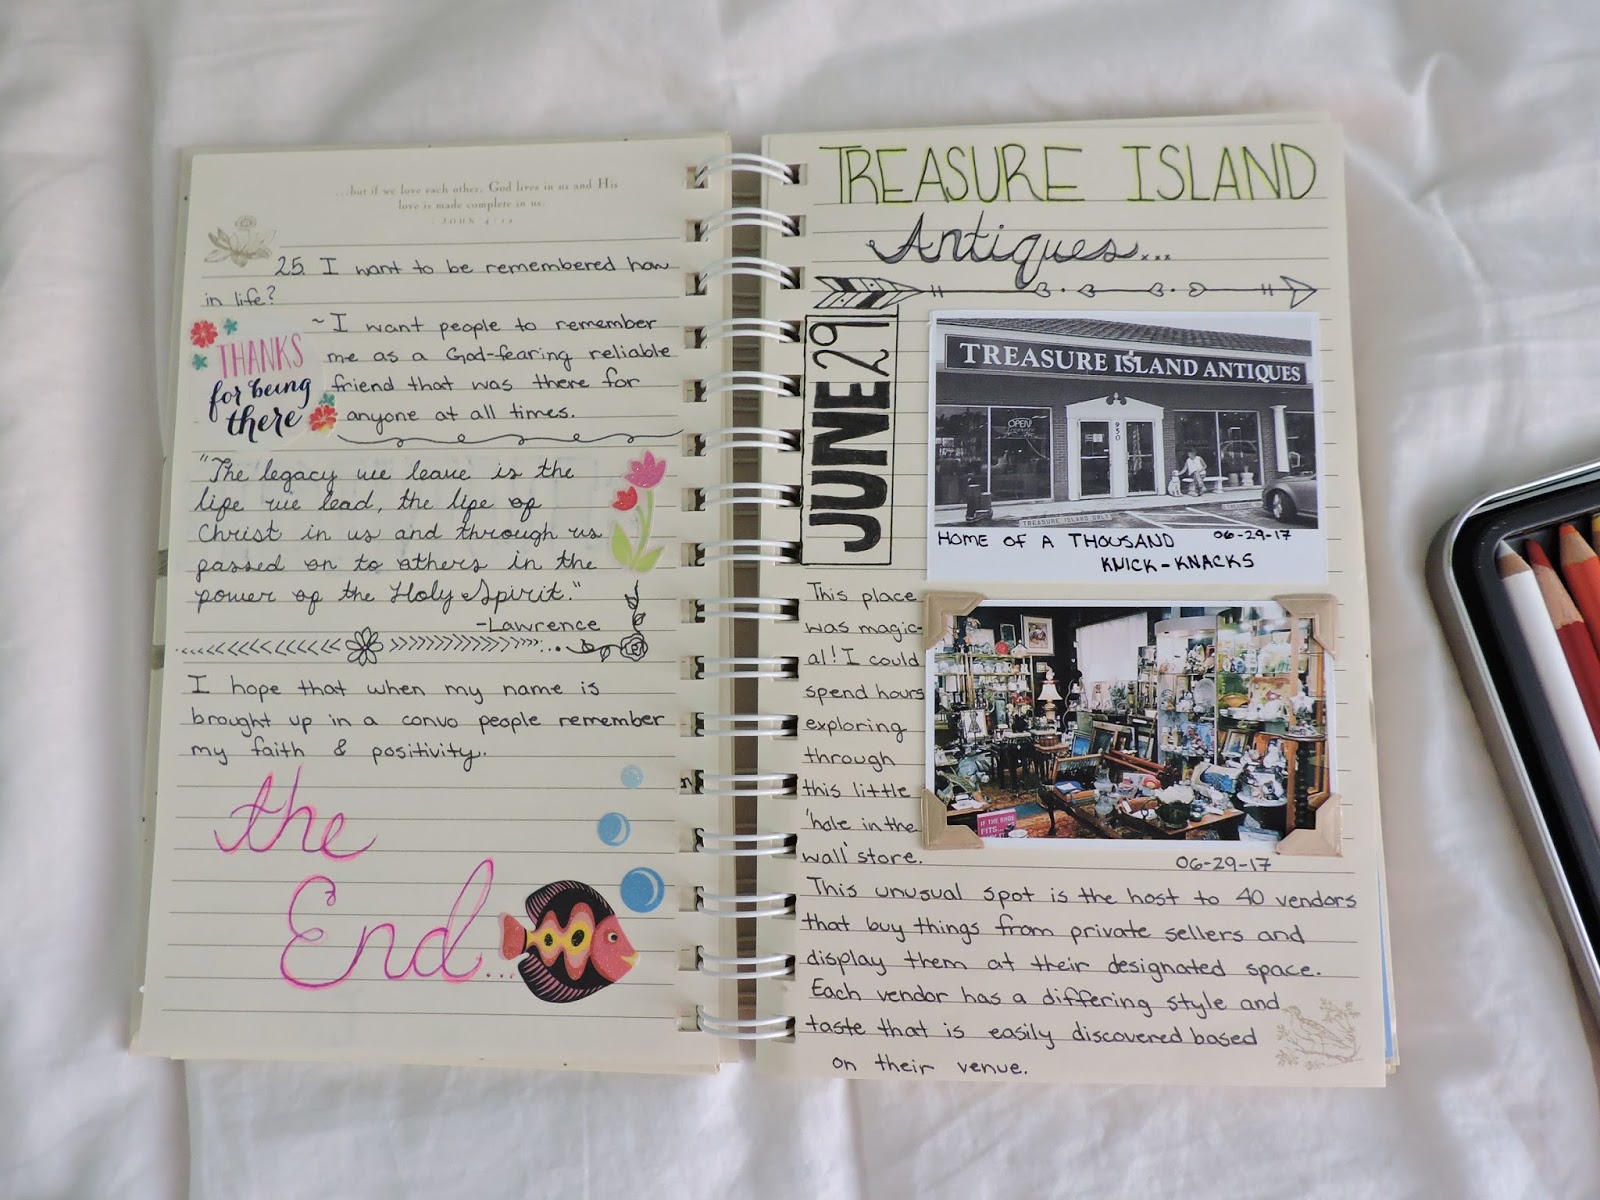 ...but if we love each other, God lives in us and His
love is made complete in us.
JOHN 4:12
25. I want to be remembered how
in life?
~I want people to remember
me as a God-fearing reliable
friend that was there for
anyone at all times.
THANKS
for being
there
"The legacy we leave is the
life we lead, the life of
Christ in us and through us
passed on to others in the
power of the Holy Spirit."
-Lawrence
I hope that when my name is
brought up in a convo people remember
my faith & positivity.
the
End...
TREASURE ISLAND
Antiques...
JUNE 29
TREASURE ISLAND ANTIQUES
OPEN
950
TREASURE ISLAND ONLY
HOME OF A THOUSAND 06-29-17
KNICK-KNACKS
This place
was magic-
al! I could
spend hours
exploring
through
this little
'hole in the
wall' store.
IF THE SHOE
FITS...
06-29-17
This unusual spot is the host to 40 vendors
that buy things from private sellers and
display them at their designated space.
Each vendor has a differing style and
taste that is easily discovered based
on their venue.